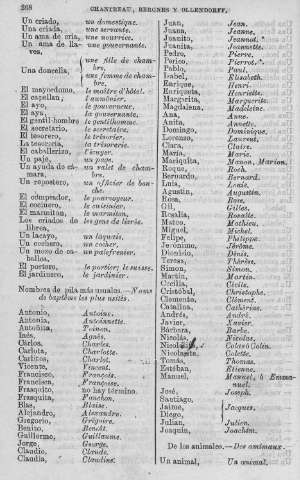 368 CHANTREAU, BERGNES Y OLLENDORFF.
Un criado, un domestique.
Una criada, une servante.
Un ama de cria, une nourrice.
Un ama de llaves, une gouvernante.
Una doncella, une fille de chambre.
une femme de chambre.
El mayordomo, le maître d'hôtel.
El capellan, l'aumônier.
El ayo, le gouverneur.
El aya, la gouvernante.
El gentil-hombre, le gentilhomme.
El secretario, le secrétaire.
El tesorero, le trésorier.
La tesorería, la trésorerie.
El caballerizo, l'écuyer.
Un paje, un page.
Un ayuda de cámara, un valet de chambre.
Un repostero, un officier de bouche.
El comprador, le pourvoyeur.
El cocinero, le cuisinier.
El marmiton, le marmiton.
Los criados de librea, les gens de livrée.
Un lacayo, un laquais.
Un cochero, un cocher.
Un mozo de caballos, un palefrenier.
El portero, le portier; le suisse.
El jardinero, le jardinier.
Nombres de pila más usuales.—Noms de baptême les plus usités.
Antonio, Antoine.
Antonia, Antoinette.
Antoñita, Toinon.
Inés, Agnès.
Cárlos, Charles.
Carlota, Charlotte.
Carlitos, Charlot.
Vicente, Vincent.
Francisco, François.
Francisca, Françoise.
Frasquito, no hay término.
Frasquita, Fanchon.
Blas, Blaise.
Alejandro, Alexandre.
Gregorio, Grégoire.
Benito, Benoît.
Guillermo, Guillaume.
Jorge, George.
Claudio, Claude.
Claudia, Claudine.
Juan, Jean.
Juana, Jeanne.
Juanito, Jeannot.
Juanita, Jeannette.
Pedro, Pierre.
Perico, Pierrot.
Pablo, Paul.
Isabel, Elisabeth.
Enrique, Henri.
Enriqueta, Henriette.
Margarita, Marguerite.
Magdalena, Madeleine.
Ana, Anne.
Anita, Annette.
Domingo, Dominique.
Lorenzo, Laurent.
Clara, Claire.
María, Marie.
Mariquita, Manon, Marion.
Roque, Roch.
Bernardo, Bernard.
Luis, Louis.
Agustin, Augustin.
Rosa, Rose.
Gil, Gilles.
Rosalía, Rosalie.
Mateo, Mathieu.
Miguel, Michel.
Felipe, Philippe.
Jerónimo, Jérôme.
Dionisio, Denis.
Teresa, Thérèse.
Simon, Simon.
Martin, Martin.
Cecilia, Cécile.
Cristóbal, Christophe.
Clemente, Clément.
Catalina, Catherine.
Andrés, André.
Javier, Xavier.
Bárbara, Barbe.
Nicolás, Nicolas.
Colas ó Colin.
Nicolasita, Colette.
Tomás, Thomas.
Estéban, Etienne.
Manuel, Manuel, ó Emmanuel.
José, Joseph.
Santiago,
Jaime, Jacques.
Diego,
Julian, Julien.
Joaquin, Joachim.
De los animales.—Des animaux.
Un animal, Un animal.